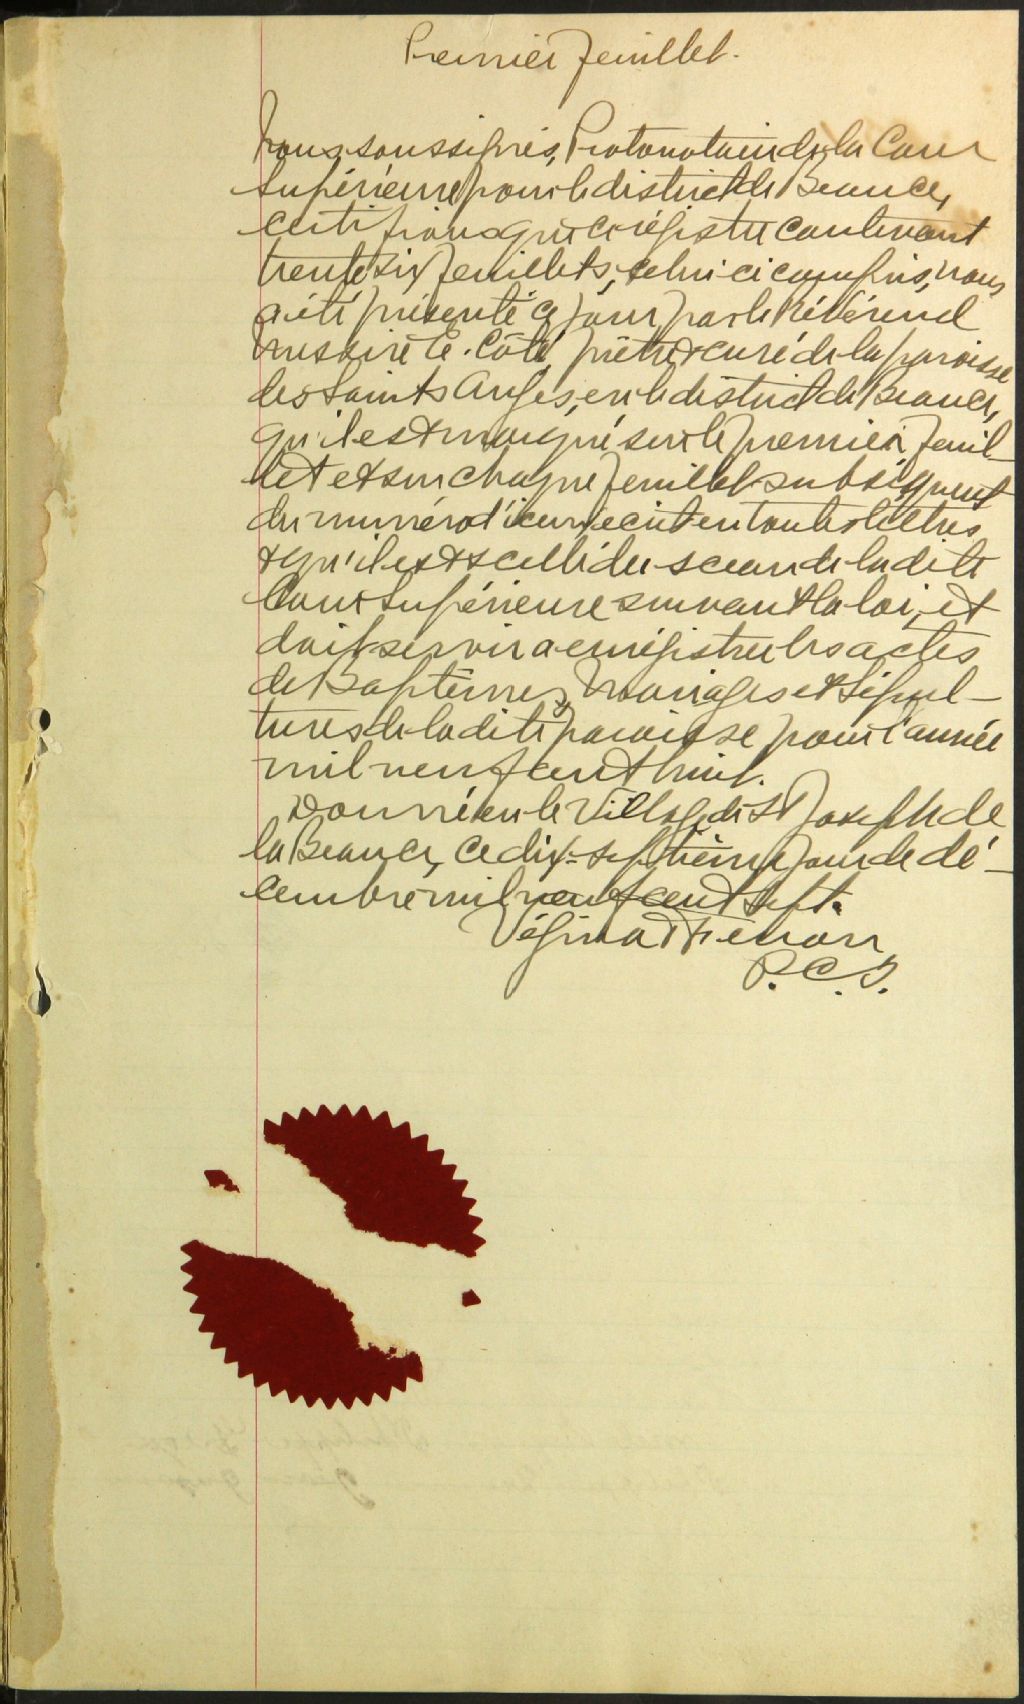 Premier feuillet.
Nous, soussignés, Protonotaire de la Cour
Supérieure pour le district de Beauce,
certifions que ce régistre contenant
trente six feuillets, celui ci compris, nous
a été présenté ce jour par le Révérend
Messire E. Côté, prêtre & curé de la paroisse
des Saints Anges, en le district de Beauce,
qu'il est marqué sur le premier feuil-
let et sur chaque feuillet subséquent
du numéro d'icelui écrit en toutes lettres
& qu'il est scellé du sceau de la dite
Cour Supérieure suivant la loi, et
doit servir a enrégistrer les actes
de Baptêmes, Mariages et Sépul-
tures de la dite paroisse pour l'année
mil neuf cent huit.
Donné en le Village de St Joseph de
la Beauce, ce dix-septième jour de dé-
cembre mil neuf cent sept.
Vézina &
P.C.S.